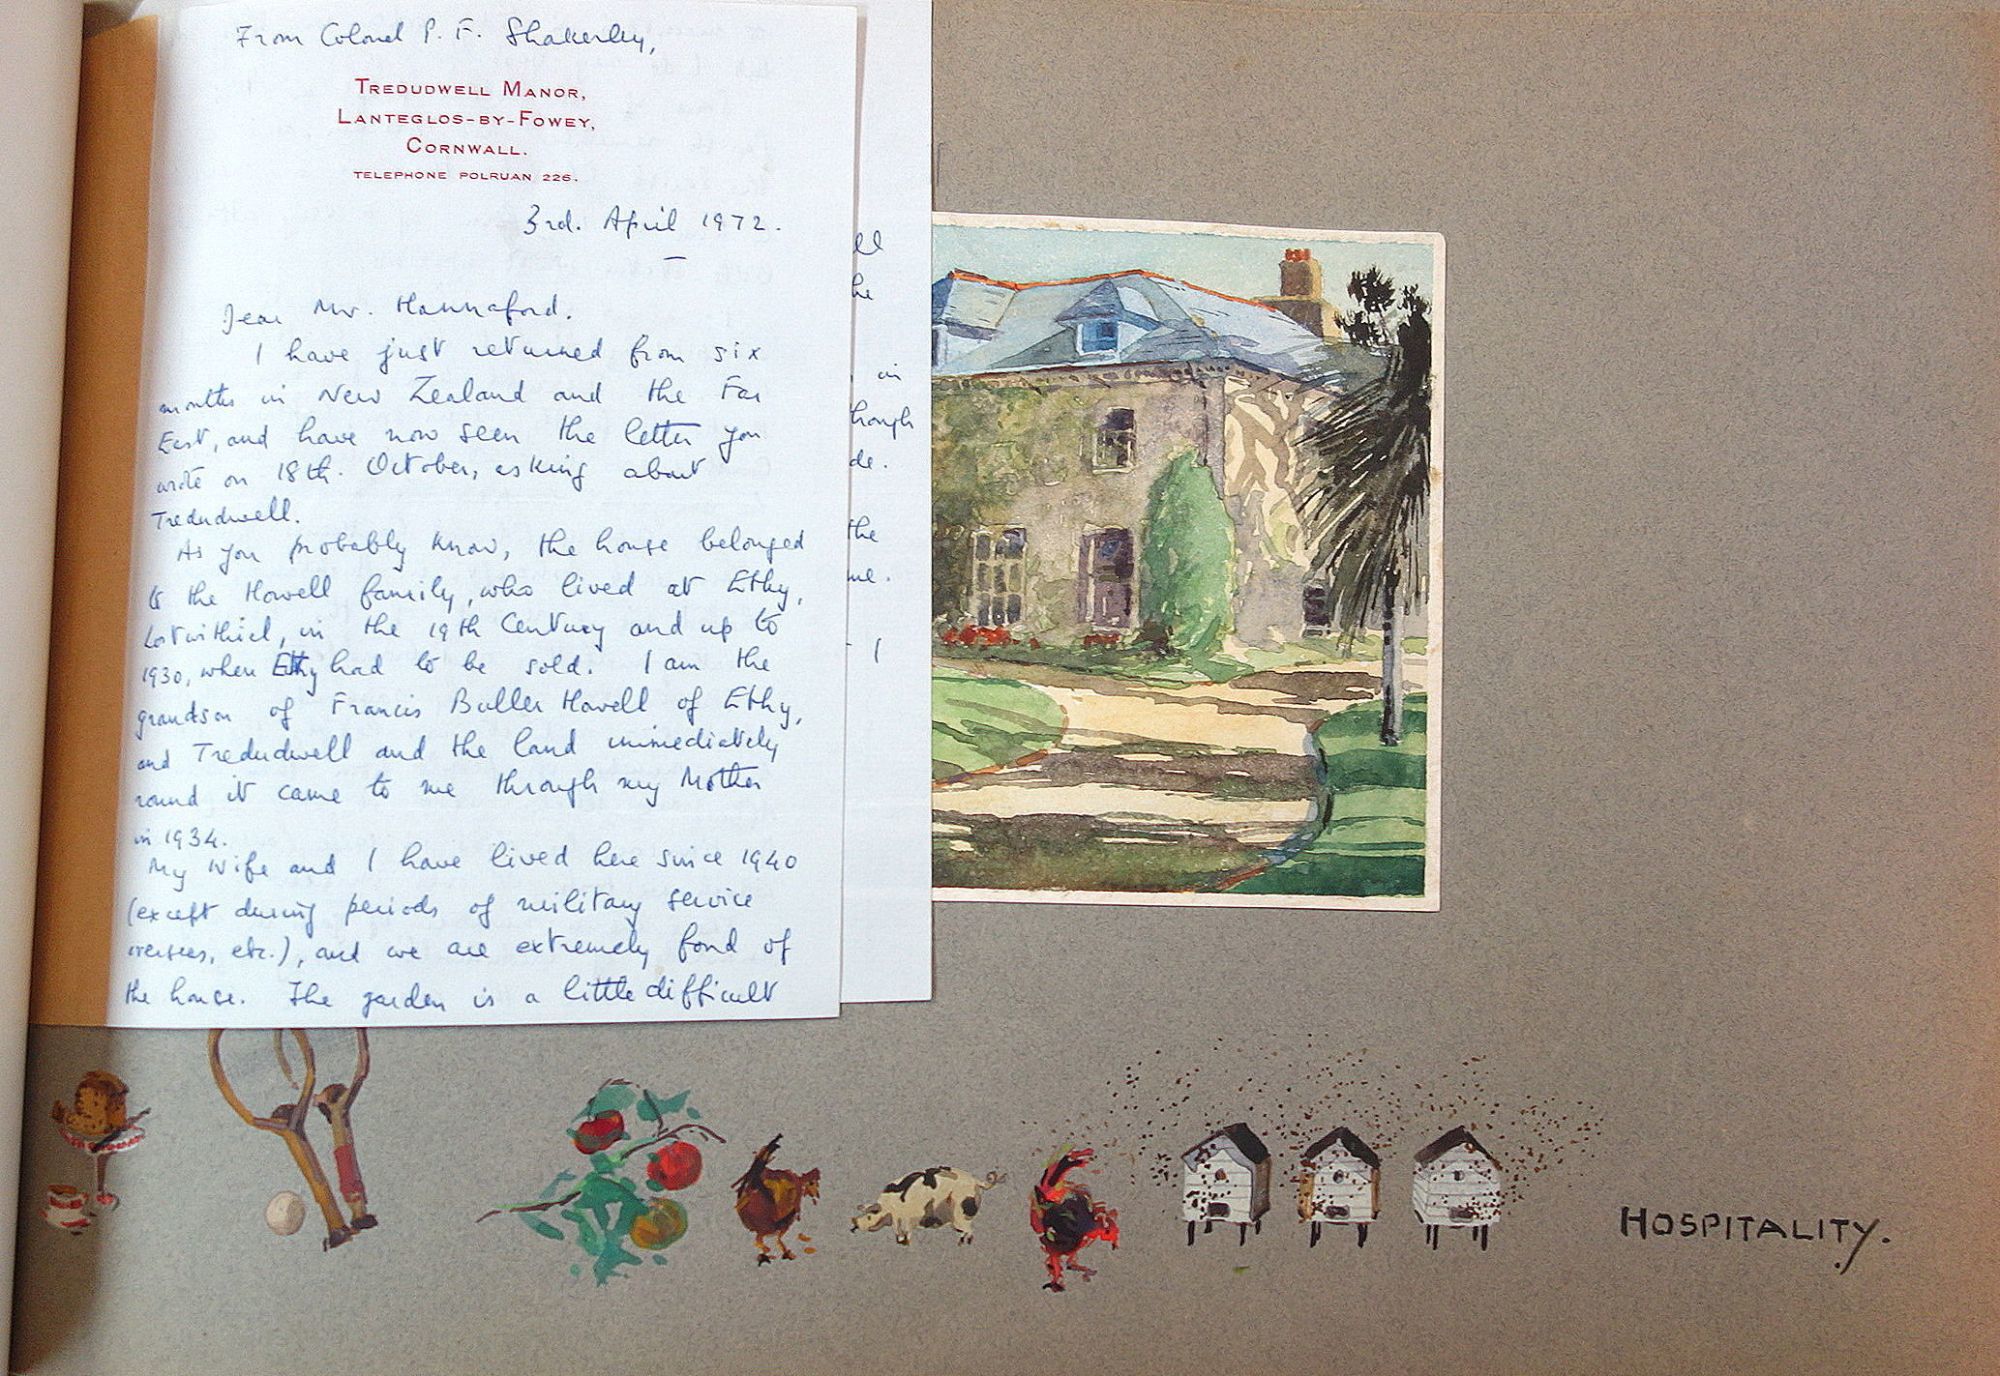 From Colonel P. F. Shakerley,
TREDUDWELL MANOR,
LANTEGLOS-BY-FOWEY,
CORNWALL.
TELEPHONE POLRUAN 226.
3rd. April 1972.
Dear Mr. Hannaford.
I have just returned from six
months in New Zealand and the Far
East, and have now seen the letter you
wrote on 18th. October, asking about
Tredudwell.
As you probably know, the house belonged
to the Howell family, who lived at Ethy,
Lostwithiel, in the 19th Century and up to
1930, when Ethy had to be sold. I am the
grandson of Francis Buller Howell of Ethy,
and Tredudwell and the land immediately
round it came to me through my Mother
in 1934.
My Wife and I have lived here since 1940
(except during periods of military service
overseas, etc.), and we are extremely fond of
the house. The garden is a little difficult
HOSPITALITY.